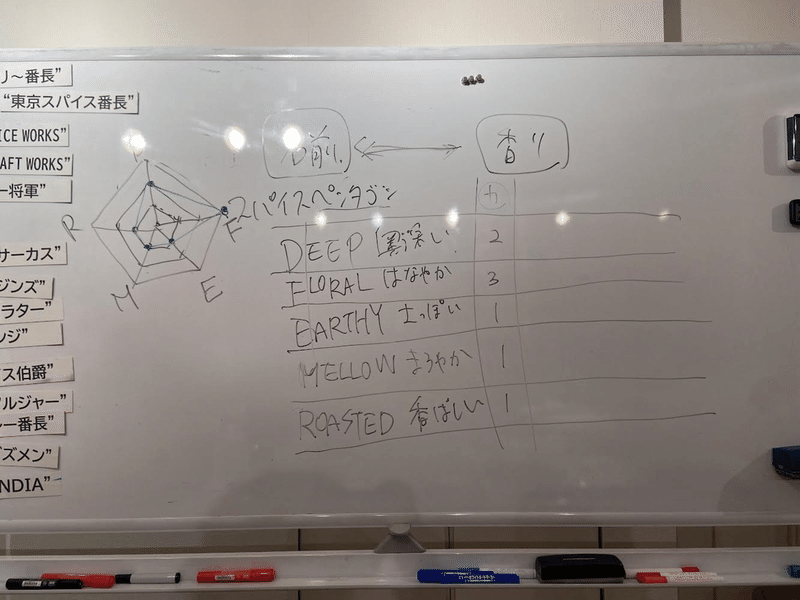 リ～番長”
“東京スパイス番長”
ICE WORKS”
AFT WORKS”
ー将軍”
サーカス”
ジンズ”
ラター”
ンジ”
ス伯爵”
ルジャー”
ー番長”
ズメン”
NDIA”
R
F
M
E
名前
香り
スパイスペンタゴン
カ
DEEP 奥深い 2
FLORAL はなやか 3
EARTHY 土っぽい 1
MELLOW まろやか 1
ROASTED 香ばしい 1